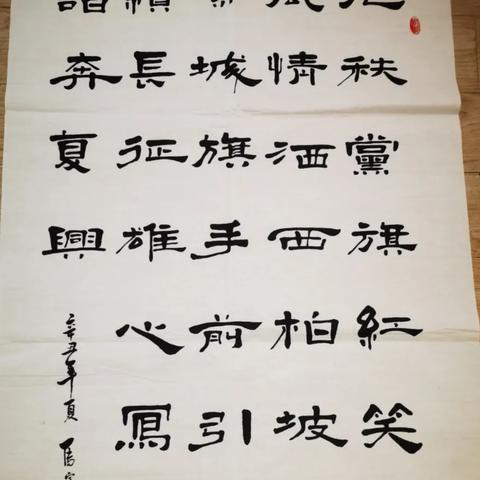 秩黨旗紅笑
情洒西柏坡
城旗手前引
長征雄心寫
奔复興
辛丑年夏